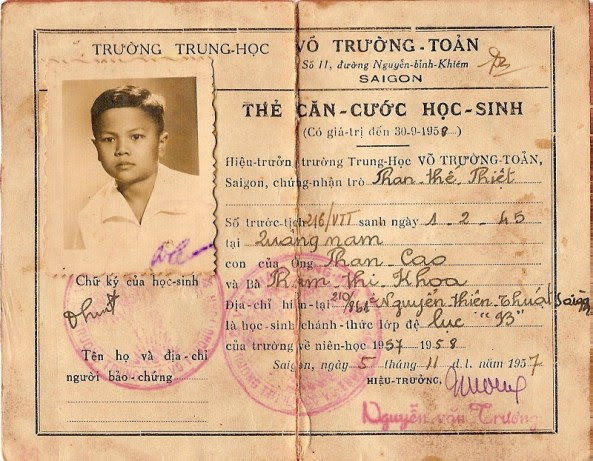 TRƯỜNG TRUNG-HỌC VÕ TRƯỜNG-TOẢN
Số 11, đường Nguyễn-bỉnh-Khiêm
SAIGON
THẺ CĂN-CƯỚC HỌC-SINH
(Có giá-trị đến 30-9-1958)
Hiệu-trưởn trường Trung-Học VÕ TRƯỜNG-TOẢN,
Saigon, chứng-nhận trò Phan thế Thiệt
Số trước-tịch 216/VTT sanh ngày 1-2-45
tại Quảng nam
con của Ông Phan Cao
và Bà Phạm thi Khoa
Địa-chỉ hiện-tại 210/ Nguyễn thiên Thuật Saigon
là học-sinh chánh-thức lớp đệ lục "B3"
của trường về niên-học 1957-1958
Saigon, ngày 5 tháng 11 d.l. năm 1957
HIỆU-TRƯỞNG,
Nguyễn văn Trương
Chữ ký của học-sinh
Tên họ và địa-chỉ
người bảo-chứng